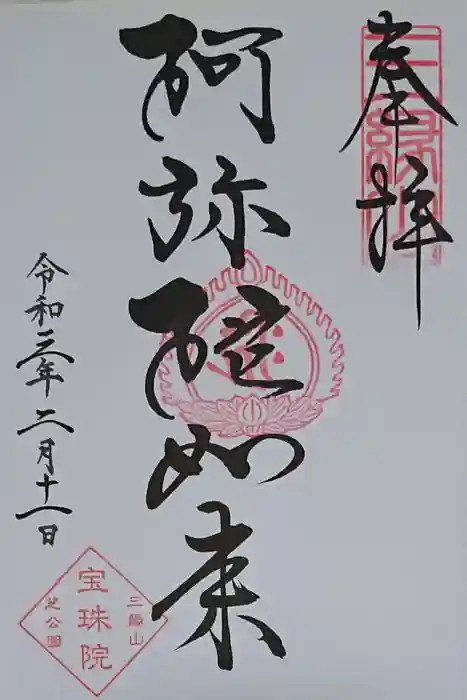 奉拝
阿弥陀如来
令和三年二月十一日
三縁山
宝珠院
芝公園